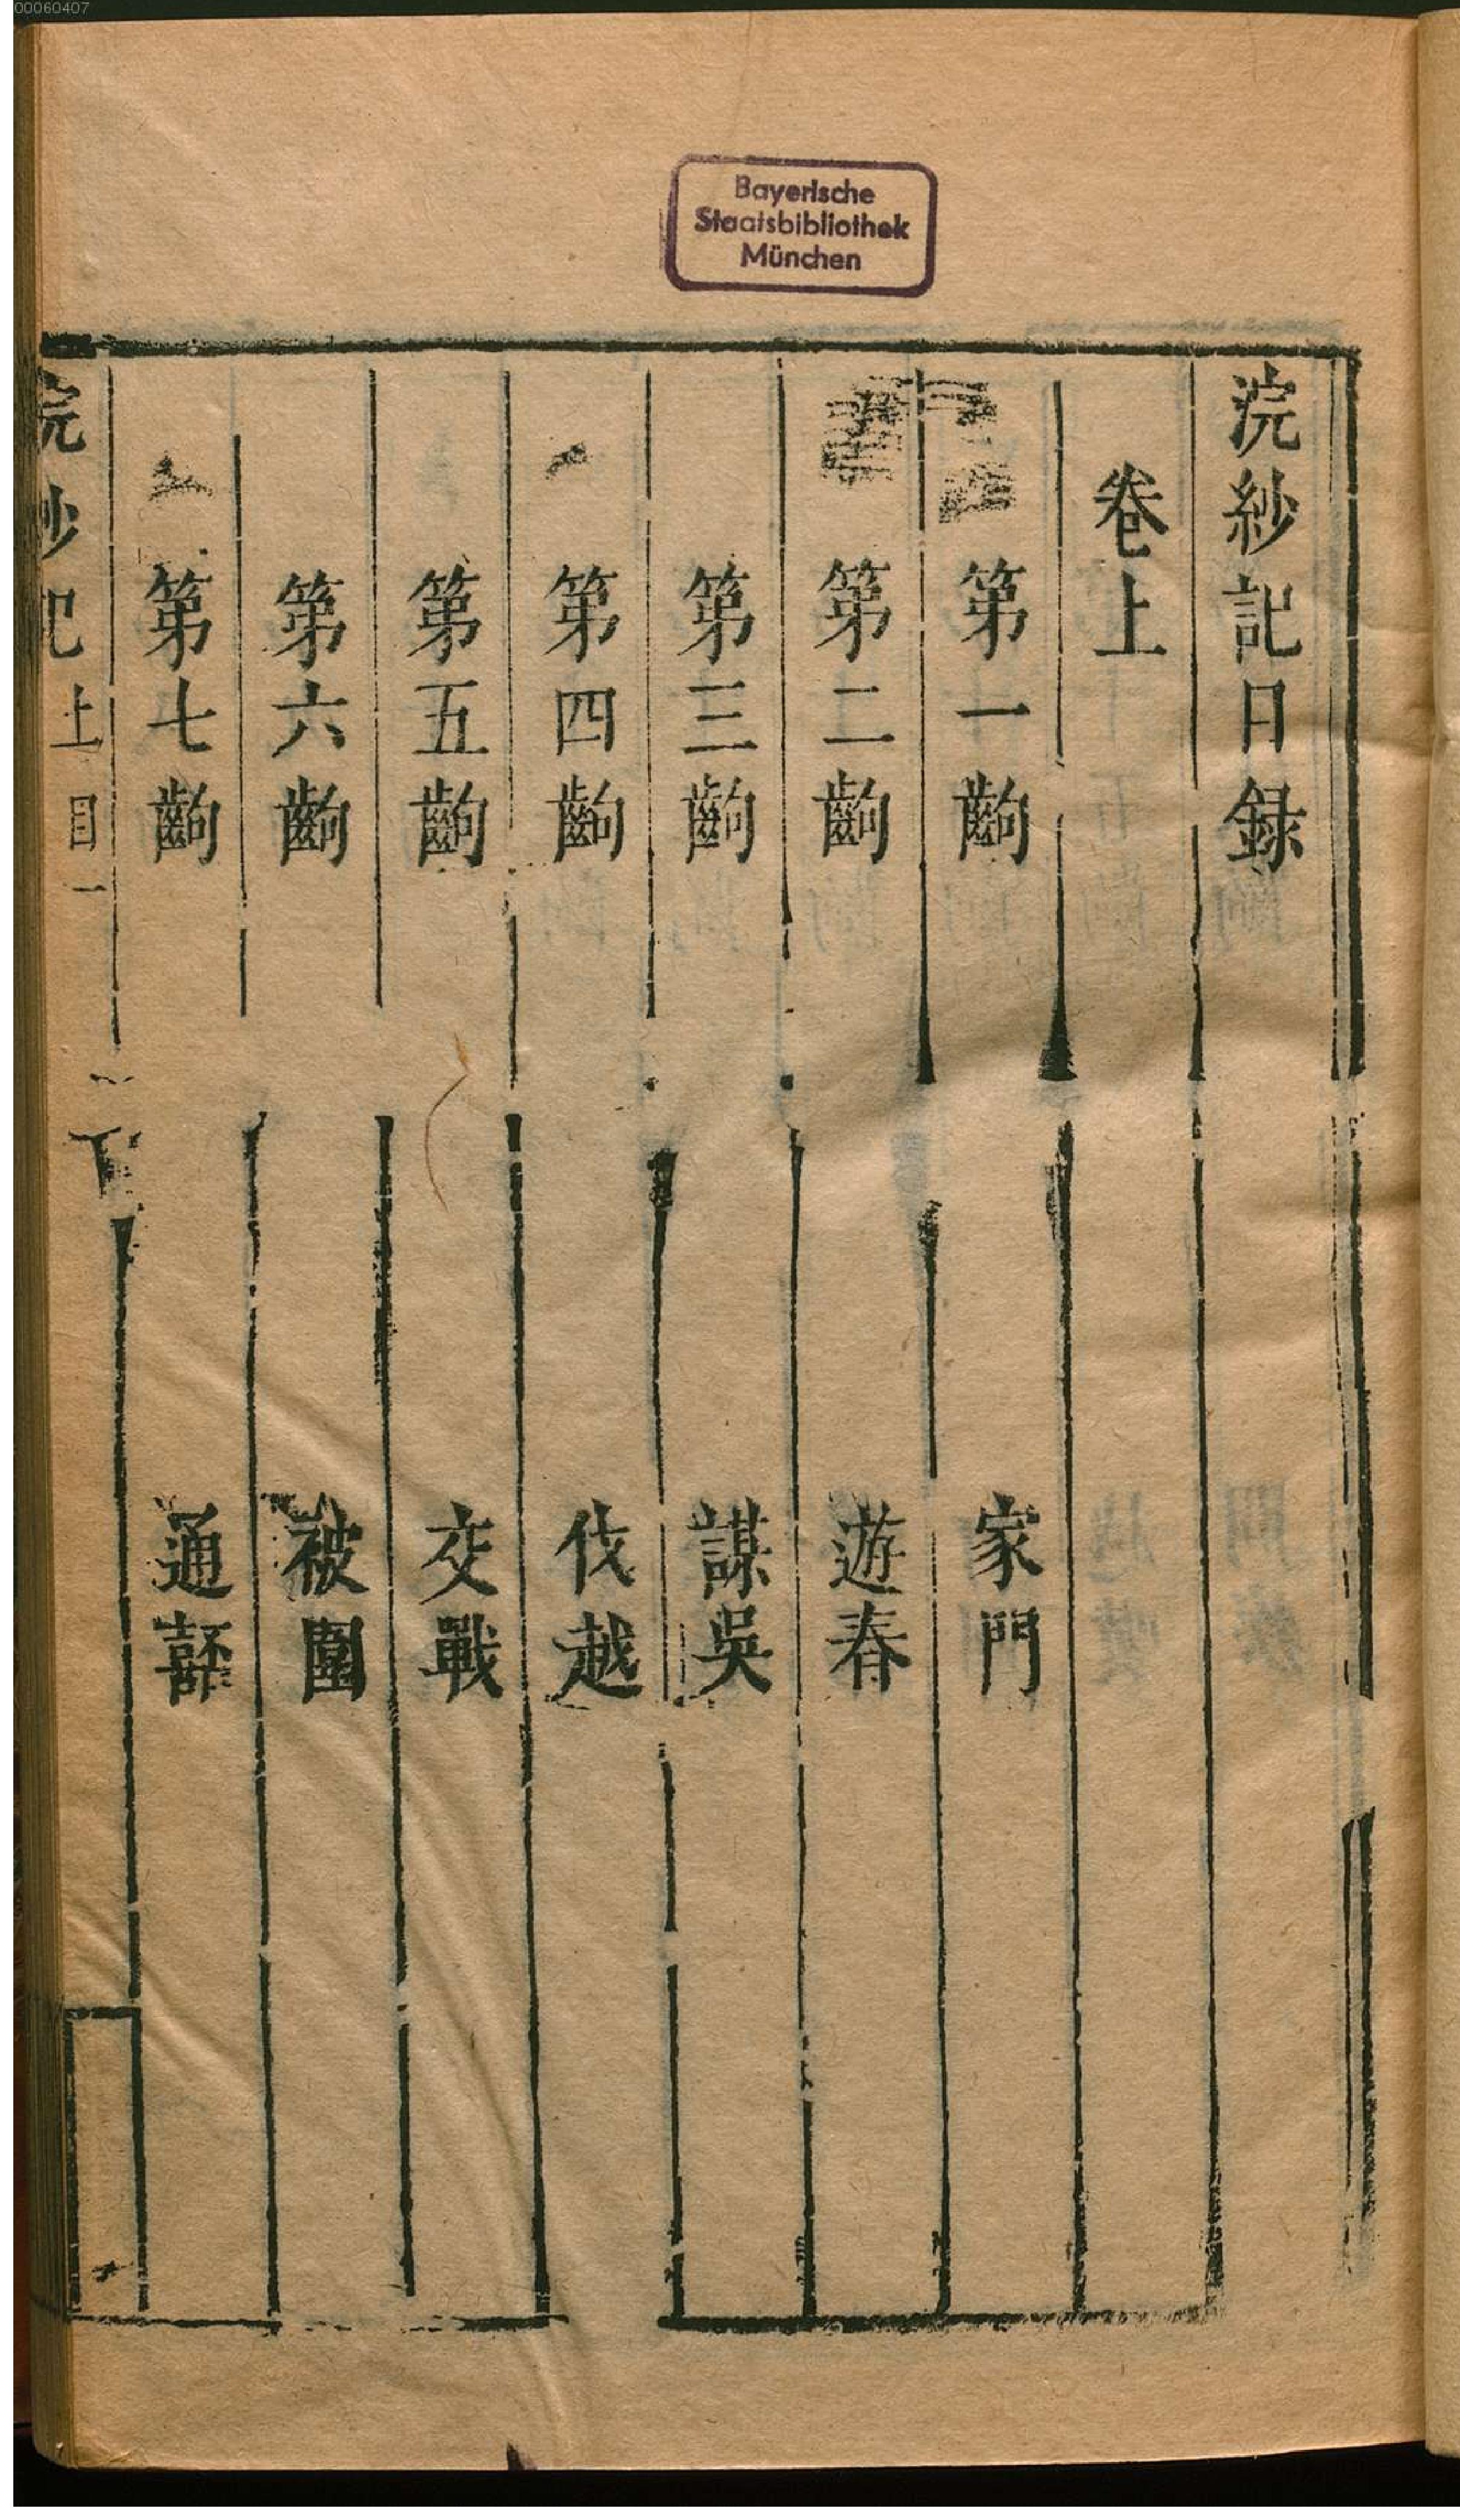 00060407
Bayerische
Staatsbibliothek
München
浣紗記日録
卷上
第一齣 家門
第二齣 遊春
第三齣 謀吳
第四齣 伐越
第五齣 交戰
第六齣 被圍
第七齣 通嚭
浣紗記 上目 一